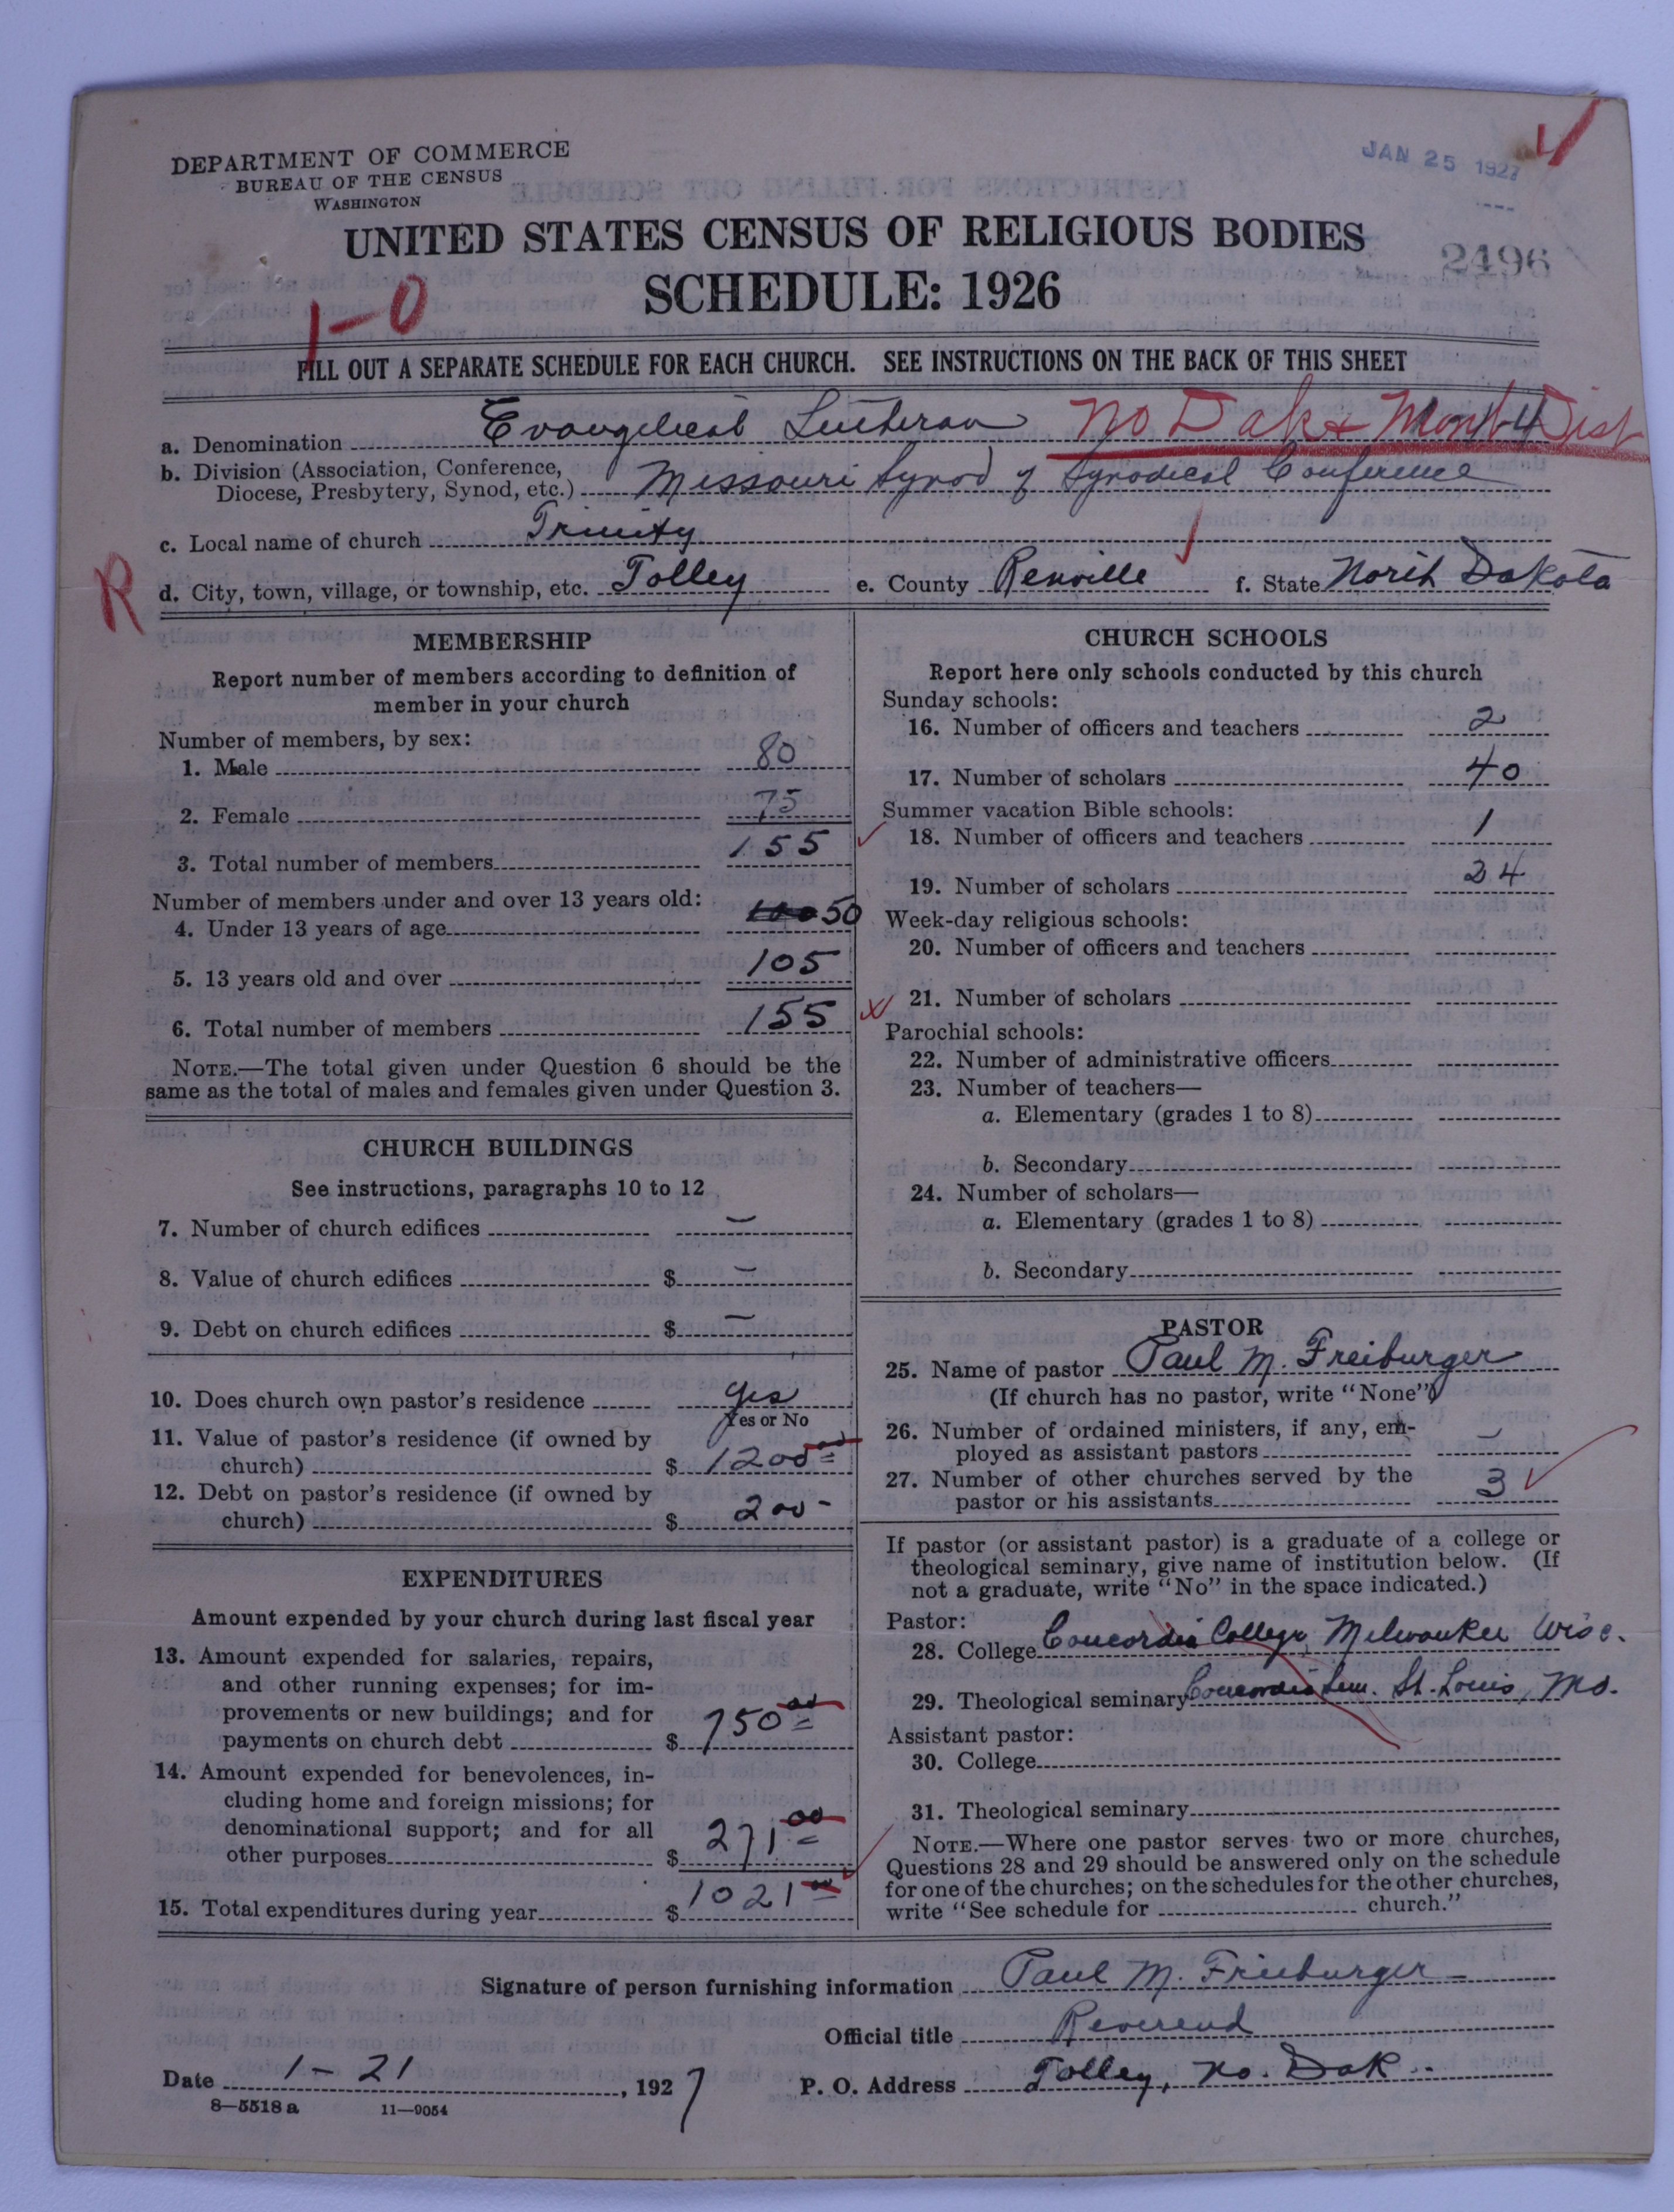 DEPARTMENT OF COMMERCE
BUREAU OF THE CENSUS
WASHINGTON
JAN 25 1927
UNITED STATES CENSUS OF RELIGIOUS BODIES
2496
SCHEDULE: 1926
1-0
FILL OUT A SEPARATE SCHEDULE FOR EACH CHURCH. SEE INSTRUCTIONS ON THE BACK OF THIS SHEET
a. Denomination Evangelical Lutheran No Dak & Mont Dist
b. Division (Association, Conference,
Diocese, Presbytery, Synod, etc.) Missouri Synod of Synodical Conference
c. Local name of church Trinity
R
d. City, town, village, or township, etc. Tolley e. County Renville f. State North Dakota
MEMBERSHIP
Report number of members according to definition of
member in your church
Number of members, by sex:
1. Male 80
2. Female 75
3. Total number of members 155
Number of members under and over 13 years old:
4. Under 13 years of age 100 50
5. 13 years old and over 105
6. Total number of members 155
NOTE.—The total given under Question 6 should be the
same as the total of males and females given under Question 3.
CHURCH BUILDINGS
See instructions, paragraphs 10 to 12
7. Number of church edifices –
8. Value of church edifices $ –
9. Debt on church edifices $ –
10. Does church own pastor's residence yes
Yes or No
11. Value of pastor's residence (if owned by
church) $ 1200 00
12. Debt on pastor's residence (if owned by
church) $ 200 -
EXPENDITURES
Amount expended by your church during last fiscal year
13. Amount expended for salaries, repairs,
and other running expenses; for im-
provements or new buildings; and for
payments on church debt $ 750 00
14. Amount expended for benevolences, in-
cluding home and foreign missions; for
denominational support; and for all
other purposes $ 271 00
15. Total expenditures during year $ 1021 00
CHURCH SCHOOLS
Report here only schools conducted by this church
Sunday schools:
16. Number of officers and teachers 2
17. Number of scholars 40
Summer vacation Bible schools:
18. Number of officers and teachers 1
19. Number of scholars 24
Week-day religious schools:
20. Number of officers and teachers
21. Number of scholars
Parochial schools:
22. Number of administrative officers
23. Number of teachers—
a. Elementary (grades 1 to 8)
b. Secondary
24. Number of scholars—
a. Elementary (grades 1 to 8)
b. Secondary
PASTOR
25. Name of pastor Paul M. Freiburger
(If church has no pastor, write "None")
26. Number of ordained ministers, if any, em-
ployed as assistant pastors –
27. Number of other churches served by the
pastor or his assistants 3
If pastor (or assistant pastor) is a graduate of a college or
theological seminary, give name of institution below. (If
not a graduate, write "No" in the space indicated.)
Pastor:
28. College Concordia College, Milwaukee Wisc.
29. Theological seminary Concordia Sem. St. Louis, Mo.
Assistant pastor:
30. College
31. Theological seminary
NOTE.—Where one pastor serves two or more churches,
Questions 28 and 29 should be answered only on the schedule
for one of the churches; on the schedules for the other churches,
write "See schedule for church."
Signature of person furnishing information Paul M. Freiburger
Official title Reverend
Date 1-21, 1927 P. O. Address Tolley, No. Dak.
8—5518a 11—9054